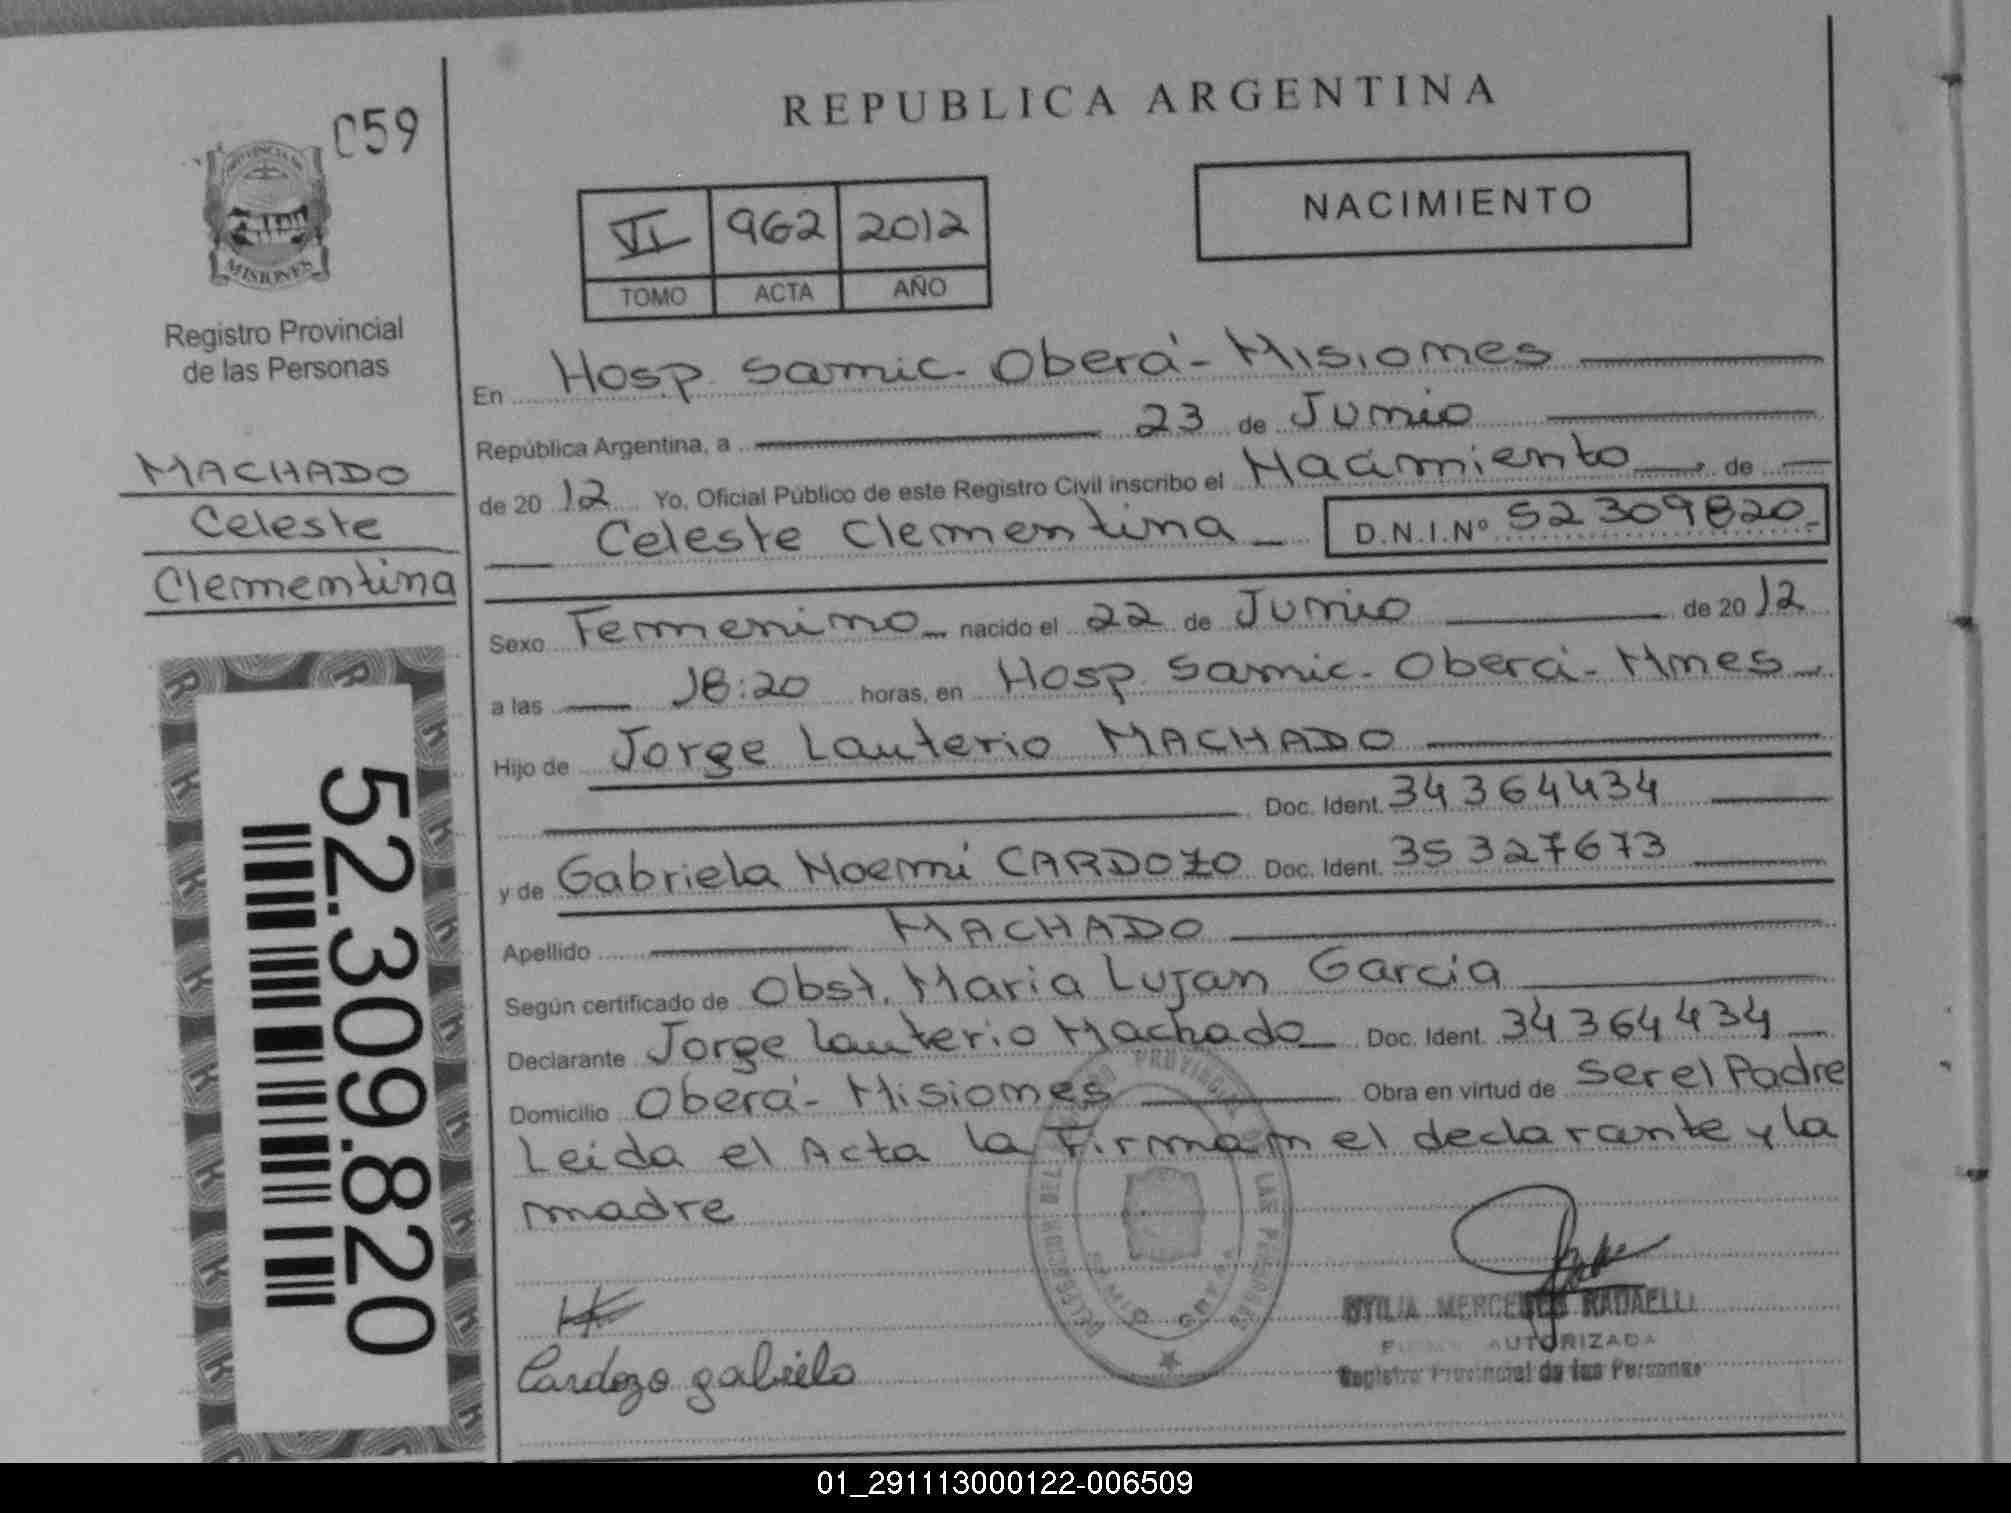 REPUBLICA ARGENTINA
059
PROVINCIA DE
MISIONES
Registro Provincial
de las Personas
MACHADO
Celeste
Clementina
52.309.820
VI 962 2012
TOMO ACTA AÑO
NACIMIENTO
En Hosp. Samic. Oberá - Misiones
República Argentina, a 23 de Junio
de 2012 Yo, Oficial Público de este Registro Civil inscribo el Nacimiento de
Celeste Clementina D.N.I.Nº 52309820
Sexo Femenino nacido el 22 de Junio de 2012
a las 18:20 horas, en Hosp. Samic. Oberá - Mnes
Hijo de Jorge Lauterio MACHADO
Doc. Ident. 34364434
y de Gabriela Noemí CARDOZO Doc. Ident. 35327673
Apellido MACHADO
Según certificado de Obst. Maria Lujan Garcia
Declarante Jorge Lauterio Machado Doc. Ident. 34364434
Domicilio Oberá - Misiones Obra en virtud de ser el Padre
Leida el Acta la Firman el declarante y la
madre
Cardozo gabriela
MERCEDES RADAELLI
FIRMA AUTORIZADA
Registro Provincial de las Personas
01_291113000122-006509